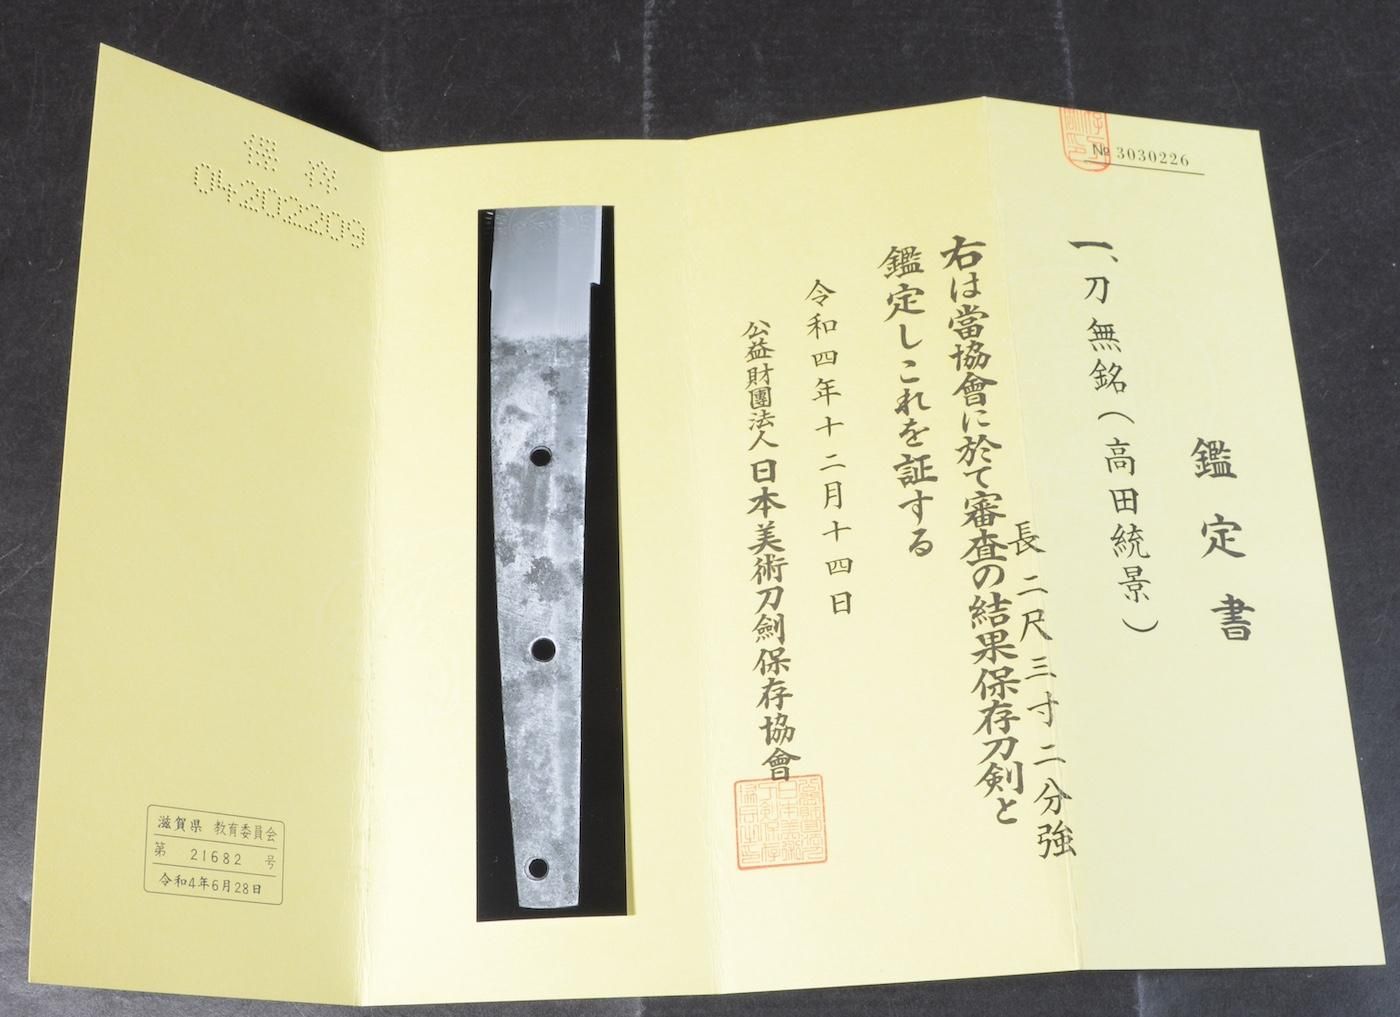 № 3030226
鑑定書
一、刀 無銘（高田統景）
長二尺三寸二分強
右は當協會に於て審査の結果保存刀剣と
鑑定しこれを証する
令和四年十二月十四日
公益財團法人 日本美術刀劍保存協會
04202209
滋賀県 教育委員会
第 21682 号
令和4年6月28日